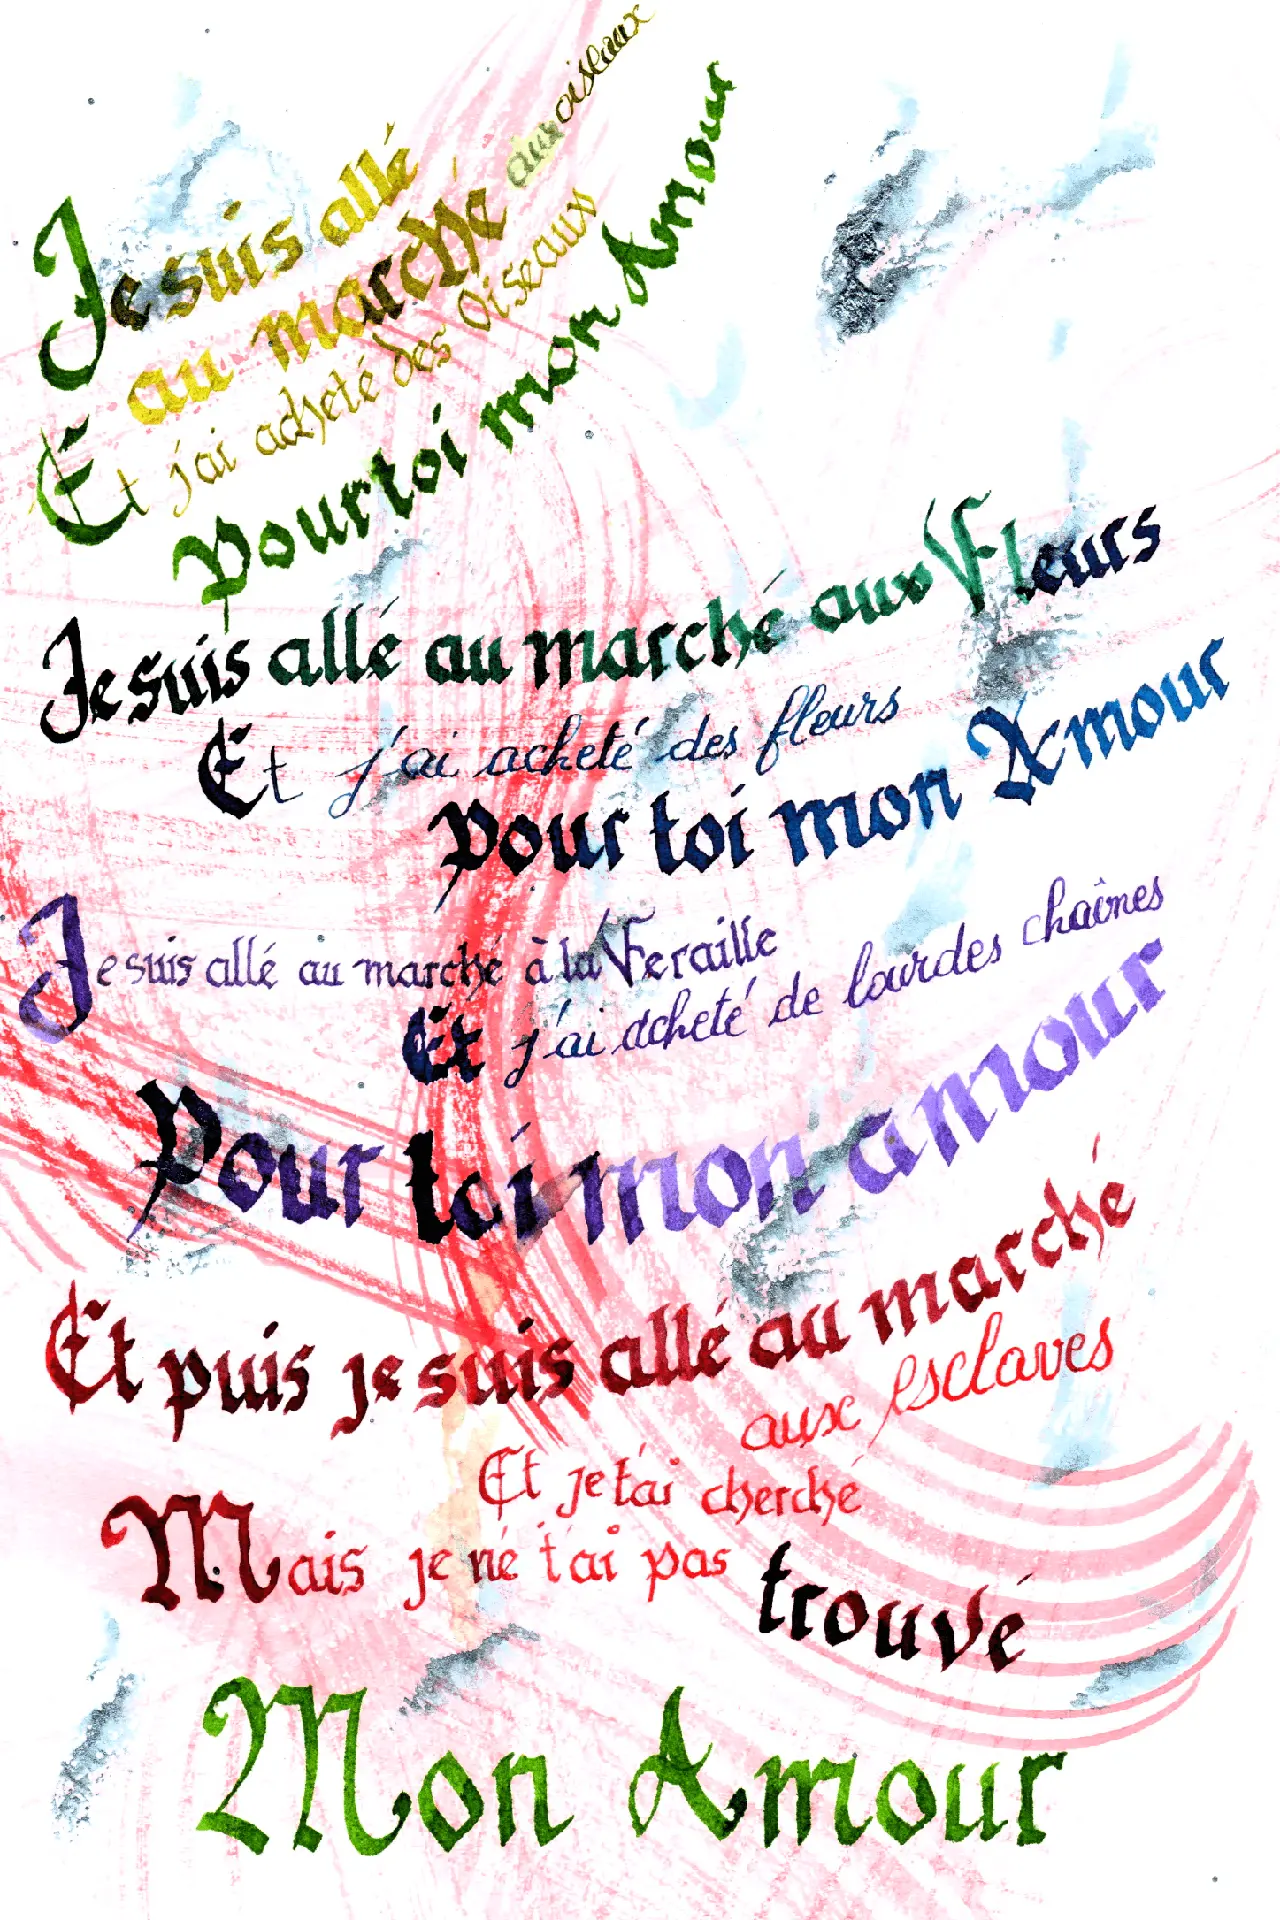 Je suis allé
au marché aux oiseaux
Et j'ai acheté des Oiseaux
Pour toi mon Amour
Je suis allé au marché aux Fleurs
Et j'ai acheté des fleurs
pour toi mon Amour
Je suis allé au marché à la Feraille
Et j'ai acheté de lourdes chaînes
Pour toi mon amour
Et puis je suis allé au marché
aux esclaves
Et je t'ai cherché
Mais je ne t'ai pas trouvé
Mon Amour